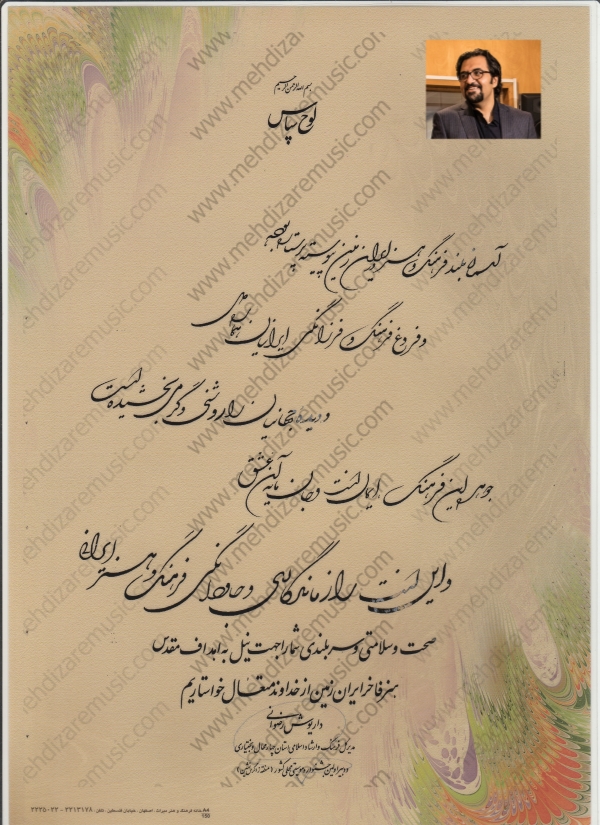 بسم الله الرحمن الرحیم
لوح سپاس
آسمان بلند فرهنگ و هنر ایران زمین پیوسته پرستاره بوده
و فروغ فرهنگ و فرزانگی ایرانیان
و دیده جهانیان را روشنی و گرمی بخشیده است
جوهر این فرهنگ ایمان است و جان مایه آن عشق
و این است راز ماندگاری و جاودانگی فرهنگ و هنر ایرانی
صحت و سلامتی و سربلندی شما را جهت نیل به اهداف مقدس
هنر فاخر ایران زمین از خداوند متعال خواستاریم
داریوش رضوانی
مدیرکل فرهنگ و ارشاد اسلامی استان چهارمحال و بختیاری
و دبیر اولین جشنواره موسیقی محلی کشور (منطقه زاگرس نشین)
www.mehdizaremusic.com
A4